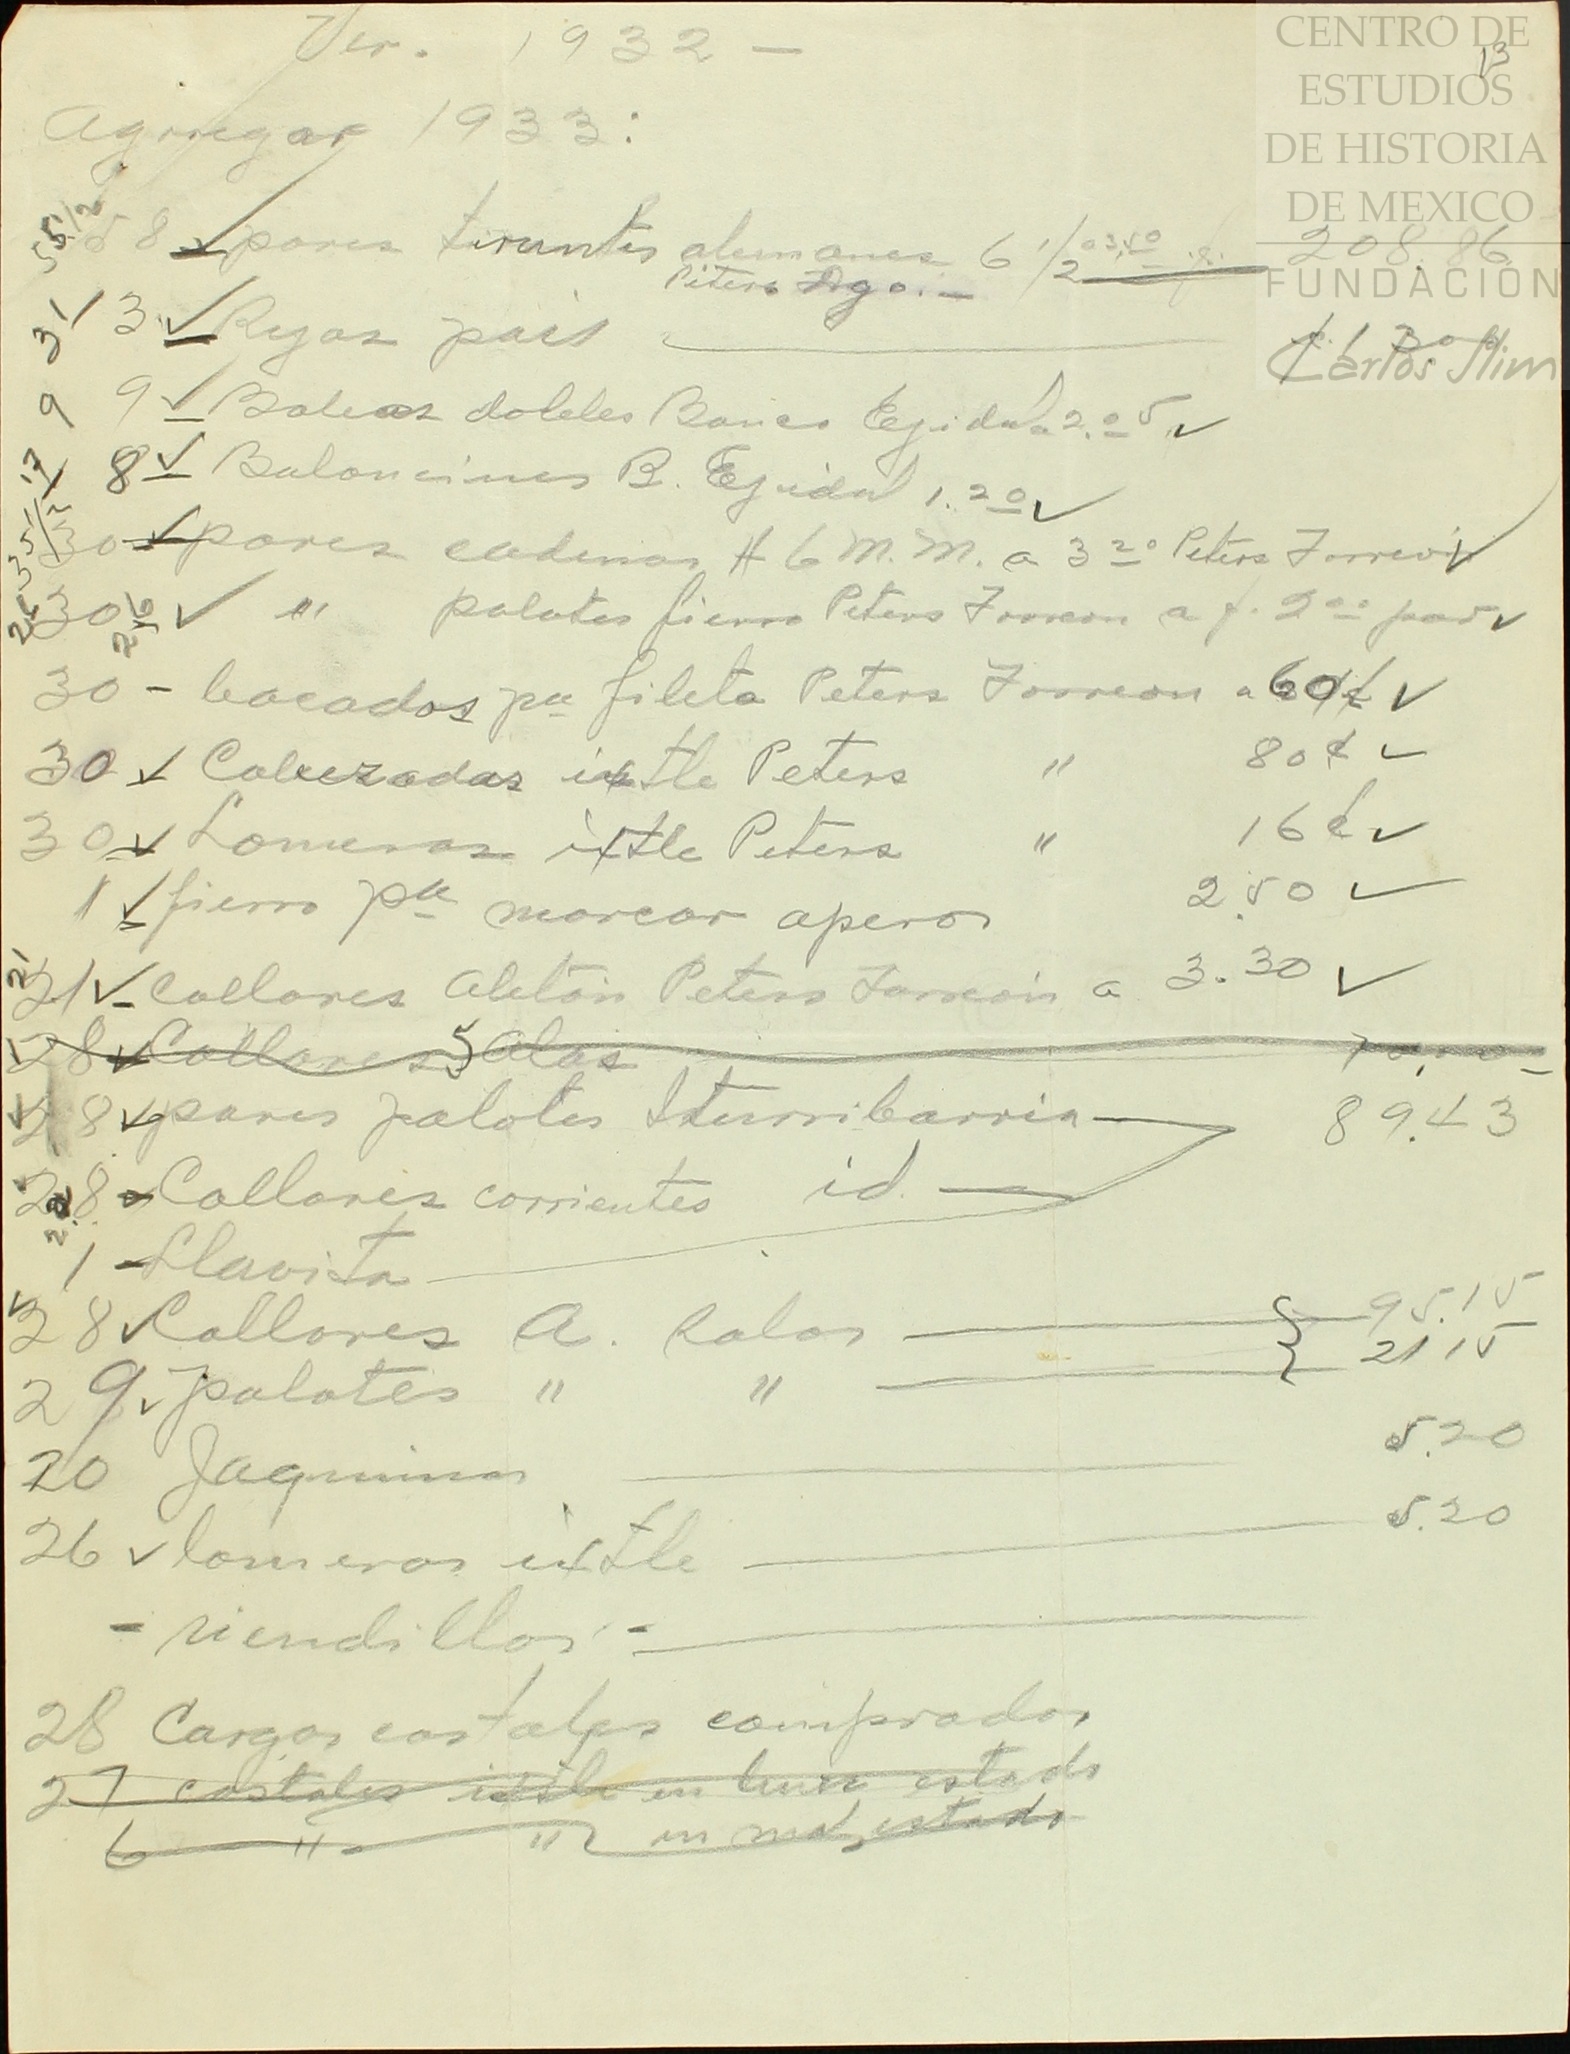 CENTRO DE
ESTUDIOS
DE HISTORIA
DE MEXICO
FUNDACIÓN
Carlos Slim
13
Ver. 1932 —
Agregar 1933:
58 pares tirantes alemanes 6 1/2 208.86
Peters Dgo. —
3 Rejas pais
9 9 Boleas dobles Banco Egidal a 2.05
8 Balancines B. Egidal 1.20
30 pares cadenas # 6 M.M. a 3 20 Peters Torreón
30 " palotes fierro Peters Torreon a $. 2 00 par
30 - bocados pa fileta Peters Torreon a 60¢
30 Cabezadas ixtle Peters " 80¢
30 Lomeras ixtle Peters " 16¢
1 fierro pa marcar aperos 2.50
21 Collares Aletón Peters Torreón a 3.30
28 Collares 5 Alas
28 pares palotes Iturribarria 89.43
28 - Collares corrientes id. —
1 - Llavita
28 Collares A. Salas 95.15
29 palotes " " 21 15
20 Jaquimas 5.20
26 lomeras ixtle 5.20
- riendillas -
28 Cargas costales comprados
27 costales ixtle en buen estado
6 " " en mal estado